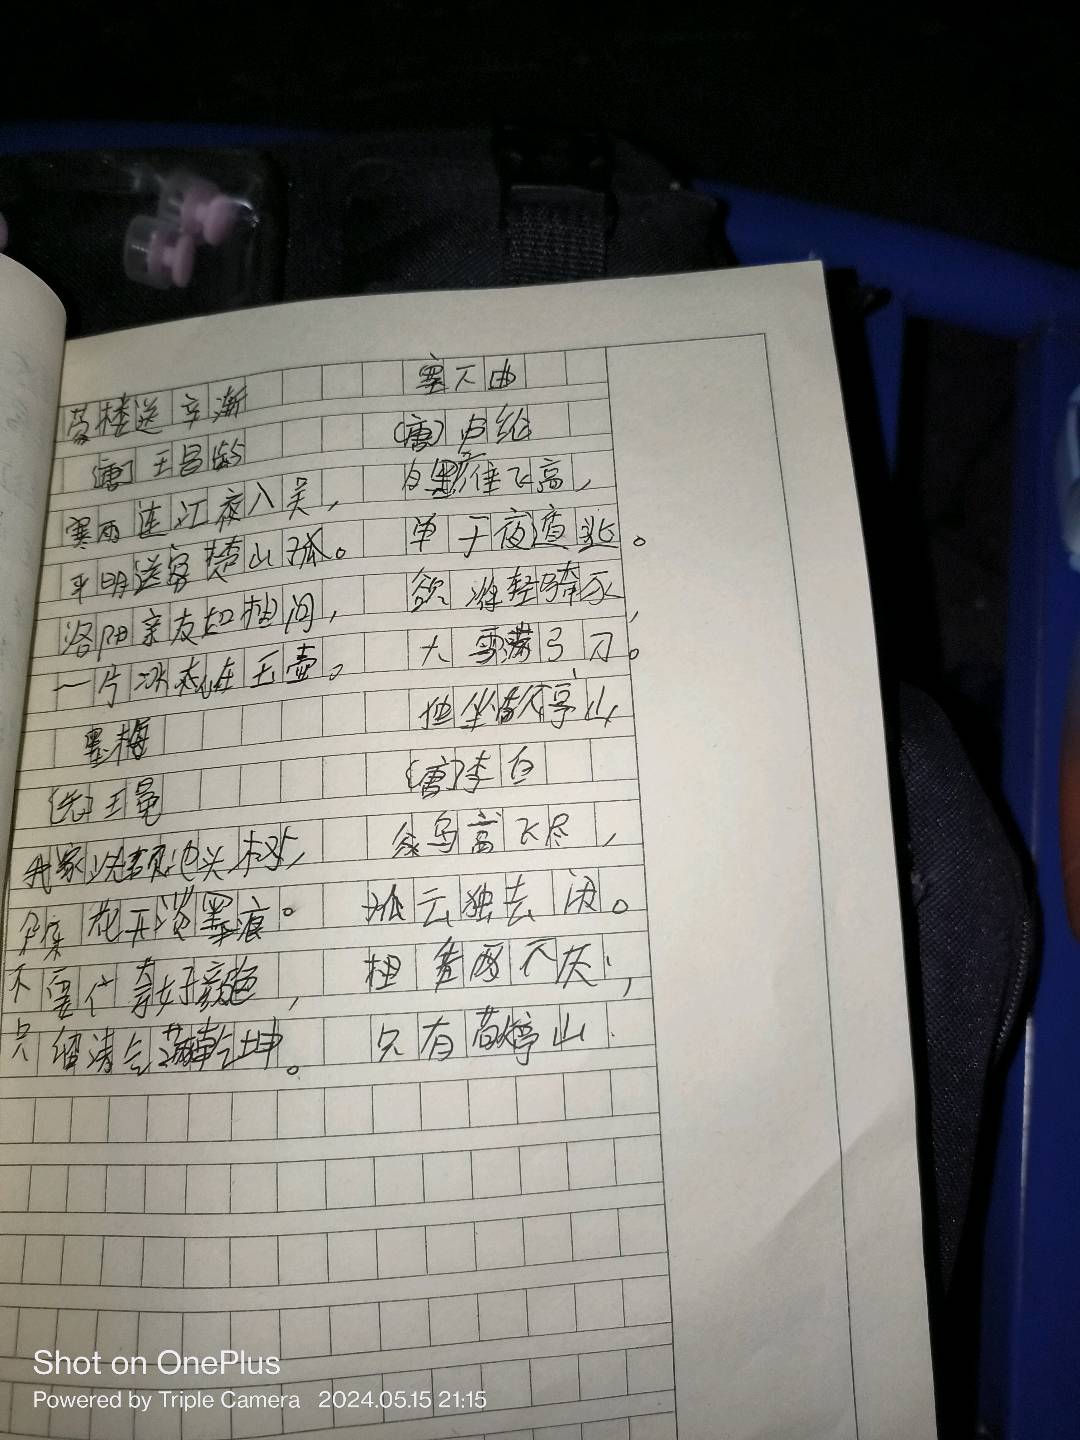 芙楼送辛渐
(唐) 王昌龄
寒雨连江夜入吴,
平明送客楚山孤。
洛阳亲友如相问,
一片冰心在玉壶。
墨梅
(元) 王冕
我家洗砚池头树,
朵朵花开淡墨痕。
不要人夸好颜色,
只留清气满乾坤。
塞下曲
(唐) 卢纶
月黑雁飞高,
单于夜遁逃。
欲将轻骑逐,
大雪满弓刀。
独坐敬亭山
(唐) 李白
众鸟高飞尽,
孤云独去闲。
相看两不厌,
只有敬亭山
Shot on OnePlus
Powered by Triple Camera 2024.05.15 21:15